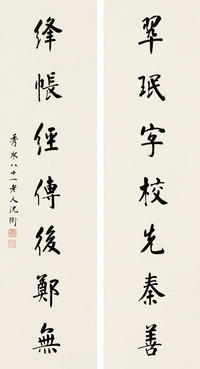 翠珉字校先秦善
绛帳經傳後鄭無
秀水八十一老人沈衛